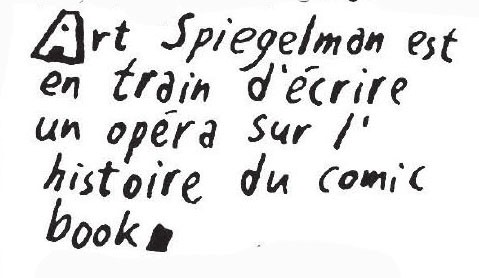 Art Spiegelman est
en train d'écrire
un opéra sur l'
histoire du comic
book.